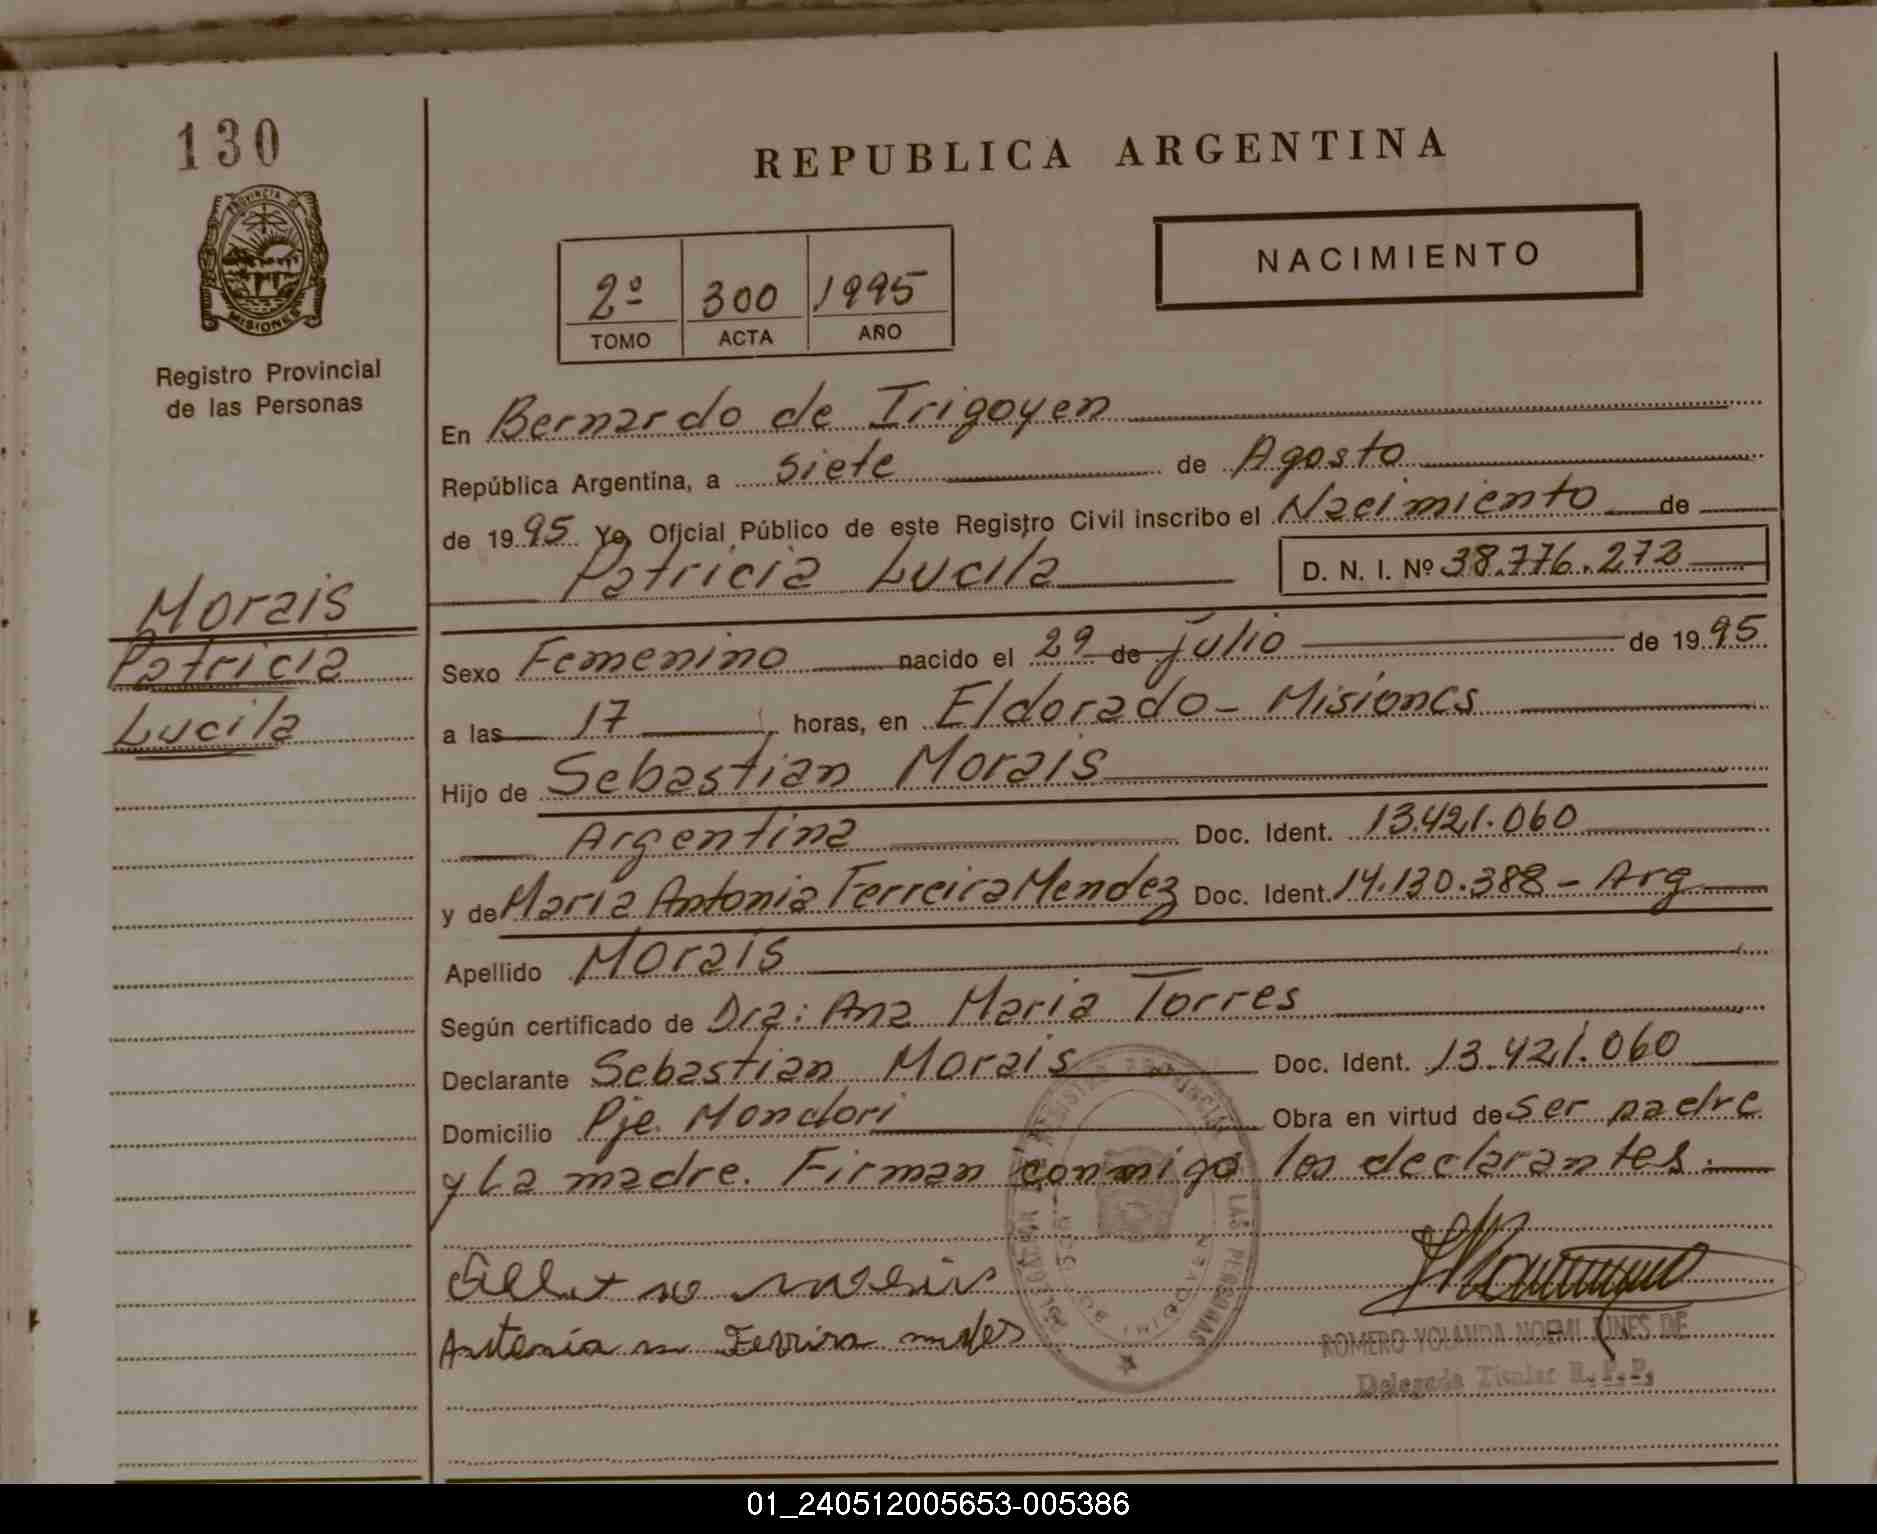 130
REPUBLICA ARGENTINA
PROVINCIA DE
MISIONES
NACIMIENTO
2º 300 1995
TOMO ACTA AÑO
Registro Provincial
de las Personas
En Bernardo de Irigoyen
República Argentina, a siete de Agosto
de 1995 Yo, Oficial Público de este Registro Civil inscribo el Nacimiento de
Patricia Lucila D. N. I. Nº 38.776.272
Morais
Patricia
Lucila
Sexo Femenino nacido el 29 de julio de 1995
a las 17 horas, en Eldorado - Misiones
Hijo de Sebastian Morais
Argentina Doc. Ident. 13.421.060
y de Maria Antonia Ferreira Mendez Doc. Ident. 14.130.388 - Arg
Apellido Morais
Según certificado de Dra: Ana Maria Torres
Declarante Sebastian Morais Doc. Ident. 13.421.060
Domicilio Pje. Mondori Obra en virtud de ser padre
y La madre. Firman conmigo los declarantes.
ROMERO YOLANDA NOEMI DE
Delegada Titular R.P.P.
01_240512005653-005386